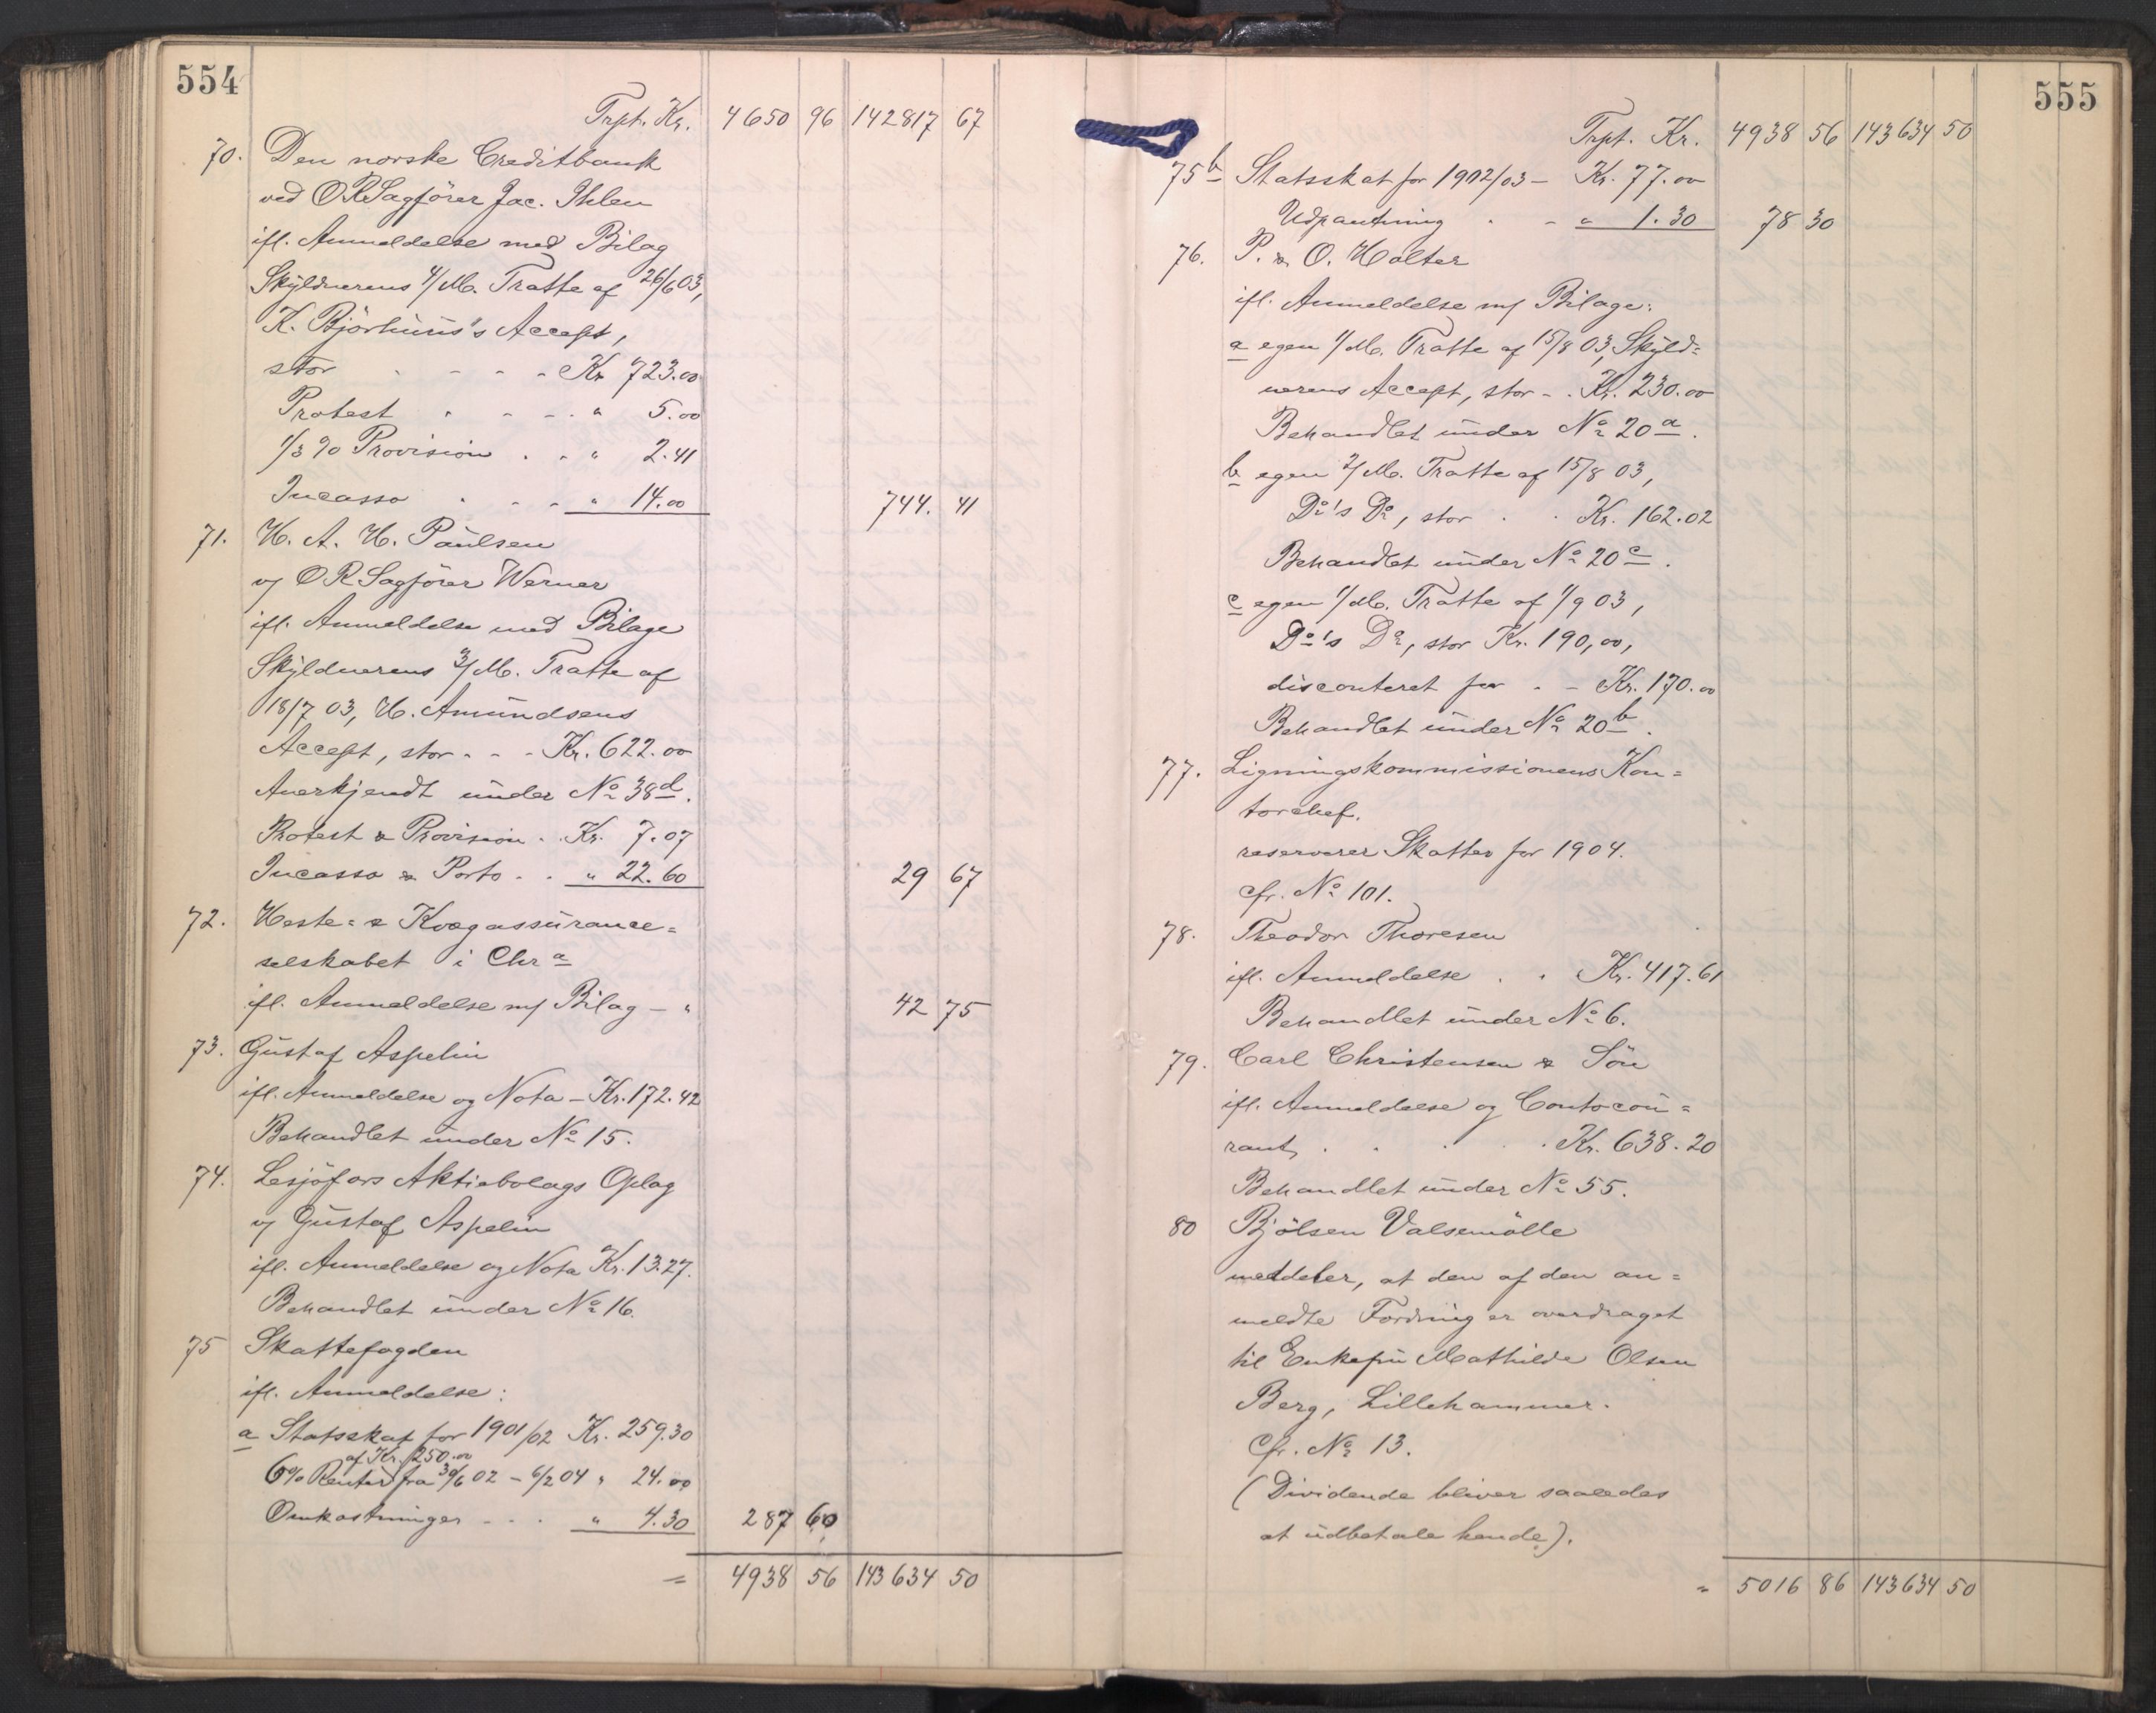 554
Trpt. Kr. 4650 96 142817 67
70. Den norske Creditbank
ved ORSagfører Jac. Ihlen
ifl. Anmeldelse med Bilag
Skyldnerens 4/M. Tratte af 26/6 03,
K. Bjørhuus's Accept,
stor - - - - Kr 723.00
Protest - - - - " 5.00
1/3 % Provision - - " 2.41
Incasso - - - " 14.00 744. 41
71. H. A. H. Paulsen
v/ ORSagfører Werner
ifl. Anmeldelse med Bilage
Skyldnerens 3/M. Tratte af
18/7 03, H. Amundsens
Accept, stor - - - Kr. 622.00
Anerkjendt under No 38d.
Protest & Provision - Kr. 7.07
Incasso & Porto - - " 22.60 29 67
72. Heste- & Kvægassurance-
selskabet i Chra
ifl. Anmeldelse m/ Bilag - " 42 75
73. Gustaf Aspelin
ifl. Anmeldelse og Nota - Kr. 172.42
Behandlet under No 15.
74. Lesjöfors Aktiebolags Oplag
v/ Gustaf Aspelin
ifl. Anmeldelse og Nota Kr. 13.27.
Behandlet under No 16.
75 Skattefogden
ifl. Anmeldelse:
a Statsskat for 1901/02 Kr. 259.30
af Kr. 250.00
6% Renter fra 30/6 02 - 6/2 04 " 24.00
Omkostninger - - - " 4.30 287 60
= 4938 56 143634 50
555
Trpt. Kr. 4938 56 143634 50
75b Statsskat for 1902/03 - Kr. 77.00
Udpantning - - " 1.30 78 30
76. P. & O. Holter
ifl. Anmeldelse m/ Bilage:
a egen 1/M. Tratte af 15/8 03, Skyld-
nerens Accept, stor - . Kr. 230.00
Behandlet under No 20a.
b egen 2/M. Tratte af 15/8 03,
Do's Do, stor . . Kr. 162.02
Behandlet under No 20c.
c egen 1/M. Tratte af 1/9 03,
Do's Do, stor Kr. 190,00,
disconteret for - - Kr. 170.00
Behandlet under No 20b.
77. Ligningskommissionens Kon-
torchef.
reserverer Skatten for 1904.
cfr. No 101.
78. Theodor Thoresen
ifl. Anmeldelse . . Kr. 417.61
Behandlet under No 6.
79. Carl Christensen & Søn
ifl. Anmeldelse og Contocou-
rant, . . . . Kr. 638.20
Behandlet under No 55.
80 Bjølsen Valsemølle
meddeler, at den af den an-
meldte Fordring er overdraget
til Enkefru Mathilde Olsen
Berg, Lillehammer.
Cfr. No 13.
(Dividende bliver saaledes
at udbetale hende).
" 5016 86 143634 50